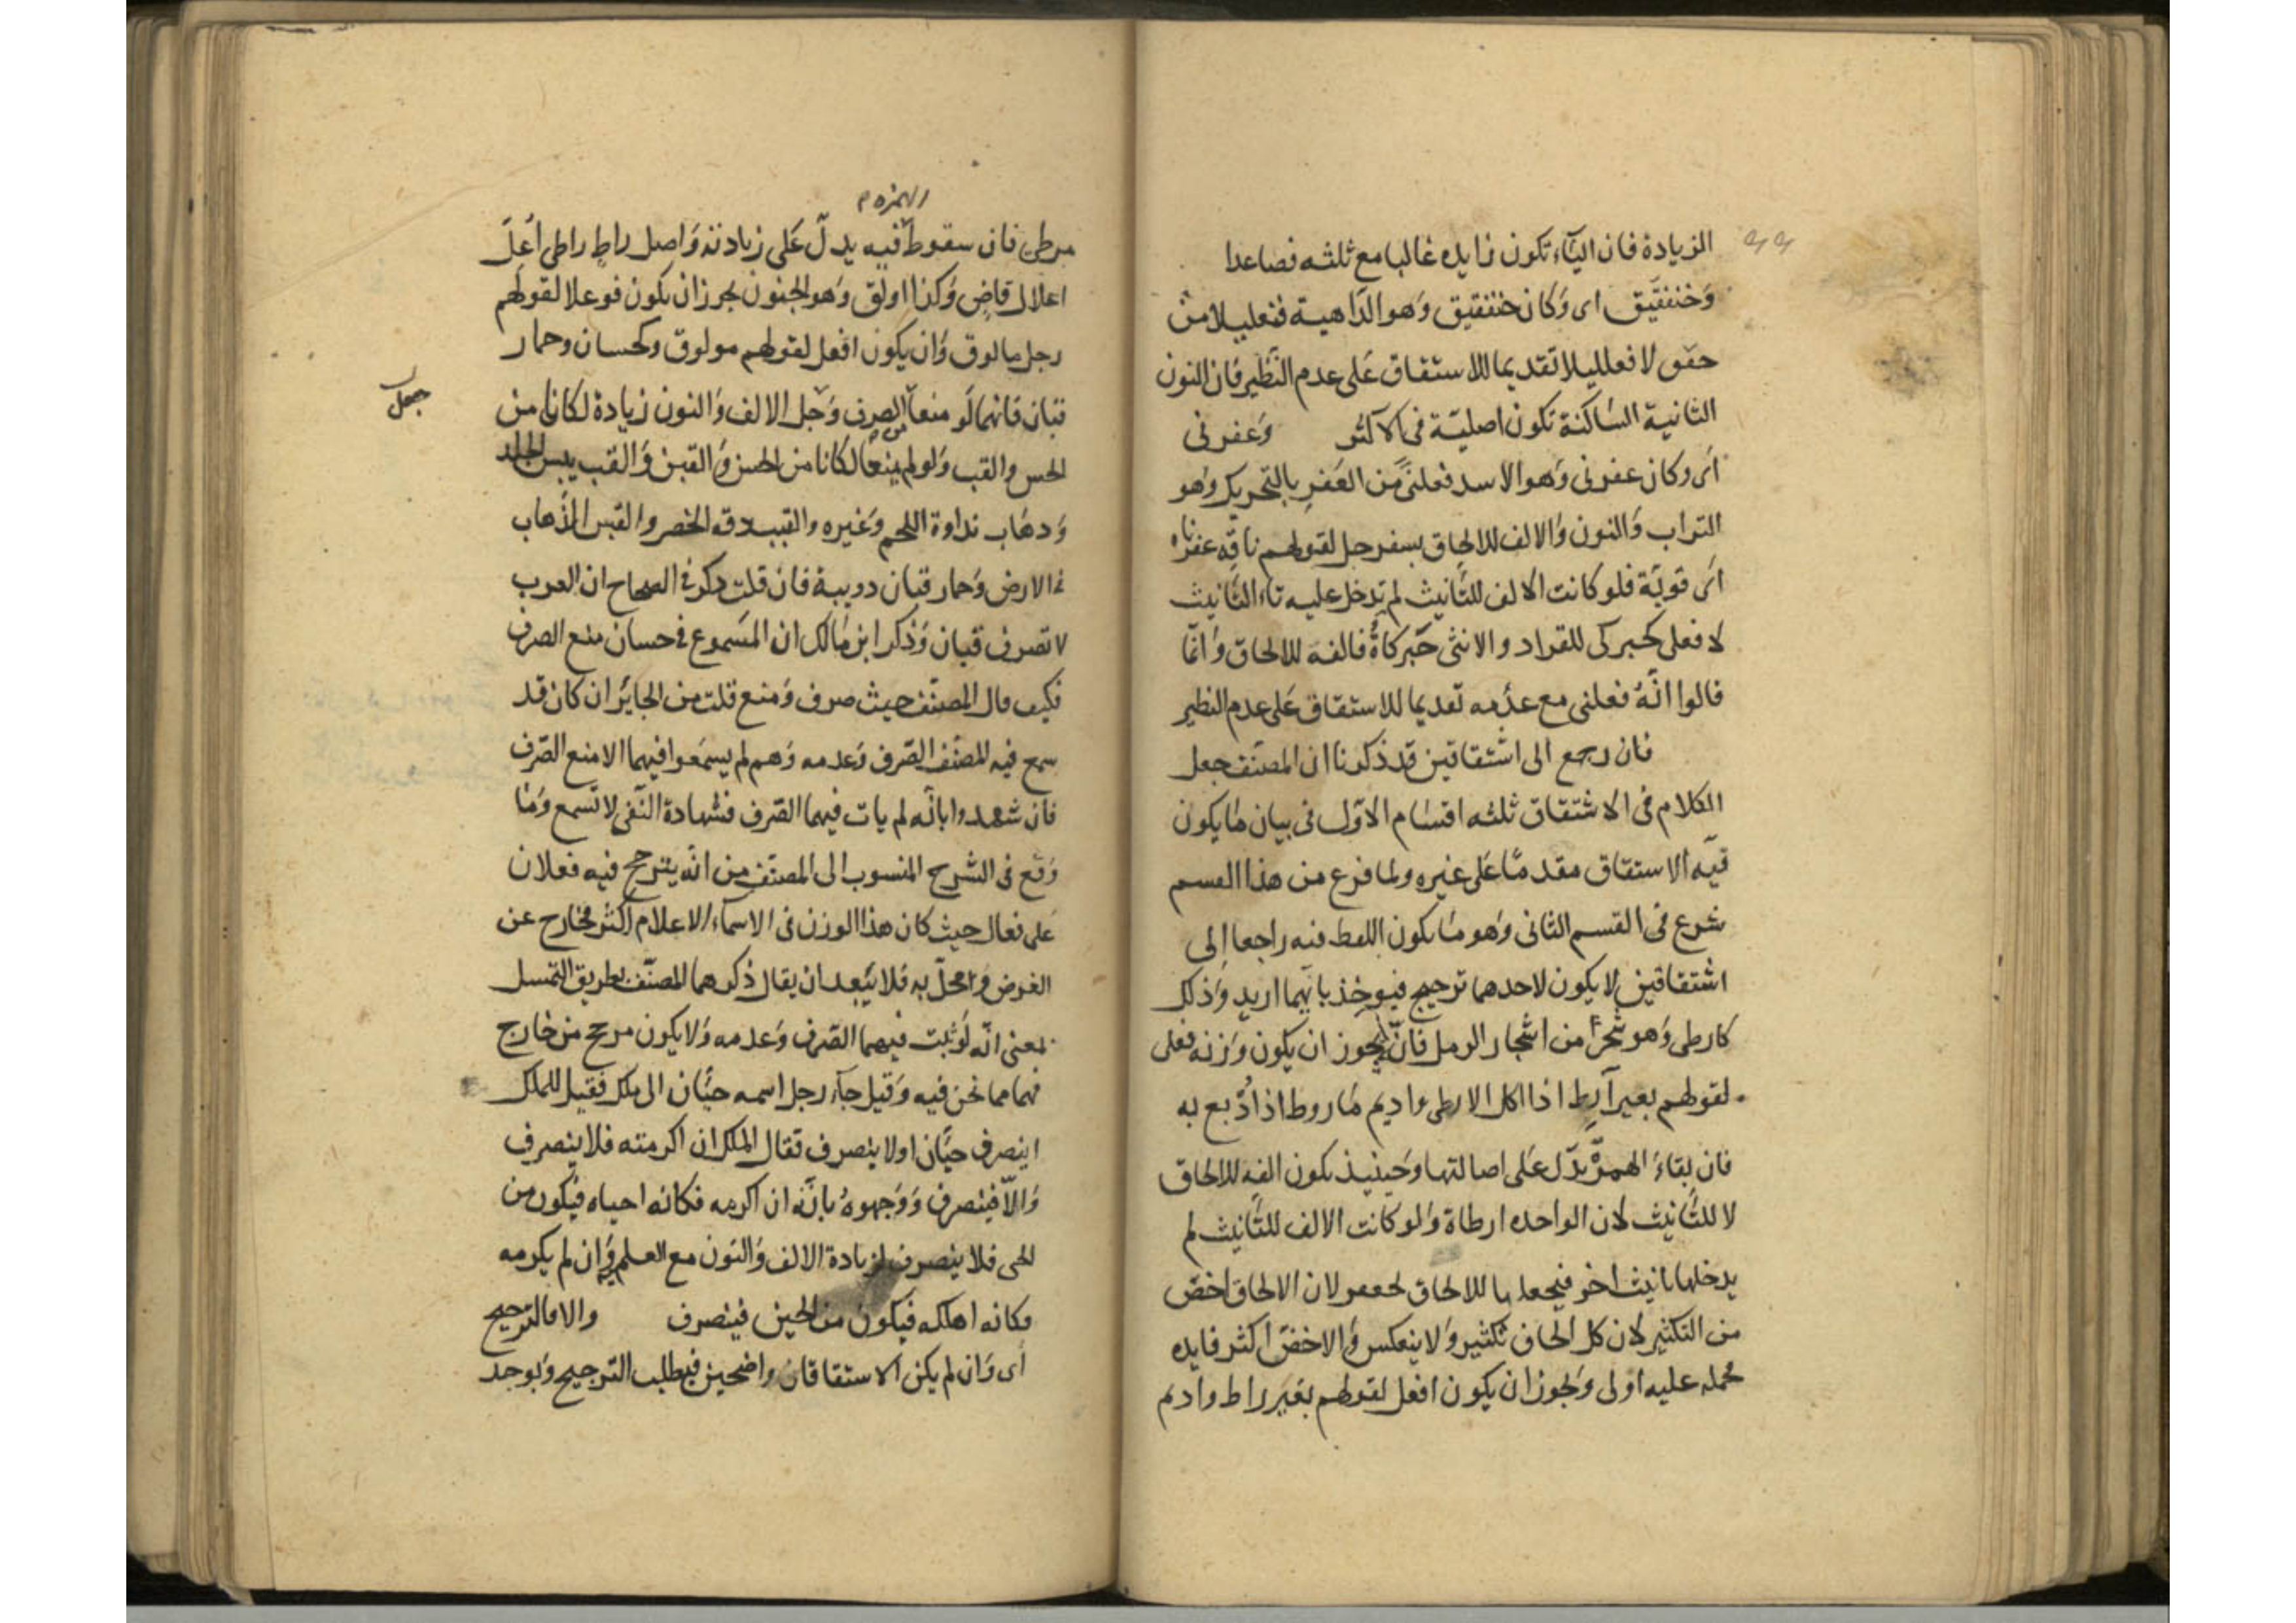 الزيادة فان الياء تكون زايده غالبا مع ثلثه فصاعدا
وخنفقيق اى وكان خنفقيق وهو الداهية فنعليلا من
حفق لا فعلليلا تقديما للاستقاق على عدم النظير فان النون
الثانية الساكنة تكون اصلية فى الاكثر وعفرنى
اى وكان عفرنى وهو الاسد فعلنى من العفر بالتحريك وهو
التراب والنون والالف للالحاق بسفرجل لقولهم ناقه عفرناه
اى قوية فلو كانت الالف للتانيث لم تدخل عليه تاء التانيث
لا فعلى كحبركى للقراد والانثى حبركاة فالفه للالحاق وانما
قالوا انه فعلنى مع عدمه تقديما للاستقاق على عدم النظير
فان رجع الى اشتقاقين قد ذكرنا ان المصنف جعل
الكلام فى الاشتقاق ثلثه اقسام الاول فى بيان ما يكون
فيه الاستقاق مقدما على غيره ولما فرغ من هذا القسم
شرع فى القسم الثانى وهو ما يكون اللفظ فيه راجعا الى
اشتقاقين لا يكون لاحدهما ترجيح فيوخذ بايهما اريد وذلك
كارطى وهو شجر من اشجار الرمل فانه يجوز ان يكون وزنه فعلى
لقولهم بعير آرط اذا اكل الارطى واديم ماروط اذا دبغ به
فان بقاء الهمزة يدل على اصالتها وحينيذ يكون الفه للالحاق
لا للتانيث لان الواحده ارطاة ولو كانت الالف للتانيث لم
يدخلها تانيث اخر فيجعلها للالحاق لحعفر لان الالحاق اخص
من التكثير لان كل الحاق تكثير ولا ينعكس والاخص اكثر فايده
فحمله عليه اولى ويجوز ان يكون افعل لقولهم بعير راط واديم
الهمزه
مرطى فان سقوط فيه يدل على زيادته واصل راط راطى اعل
اعلال قاض وكذا اولق وهو الجنون يجوز ان يكون فوعلا لقولهم
رجل مالوق وان يكون افعل لقولهم مولوق وكحسان وحمار
قبان فانهما لو منعا الصرف وجعل الالف والنون زيادة لكانا من
جعل
الحس والقب ولو لم يمنعا لكانا من الحسن والقبن والقب يبس الجلد
ودهاب نداوة اللحم وغيره والقبب دقه الخصر والقبن الذهاب
فى الارض وحمار قبان دويبة فان قلت ذكر فى الصحاح ان العرب
لا تصرف قبان وذكر ابن مالك ان المسموع فى حسان منع الصرف
فكيف قال المصنف حيث صرف ومنع قلت من الجايز ان كان قد
سمع فيه المصنف الصرف وعدمه وهم لم يسمعوا فيهما الا منع الصرف
فان شهدوا بانه لم يات فيهما الصرف فشهادة النفى لا تسمع وما
وقع فى الشرح المنسوب الى المصنف من انه يترجح فيه فعلان
على فعال حيث كان هذا الوزن فى الاسماء الاعلام اكثر فخارج عن
الغرض ومخل به فلا يبعد ان يقال ذكرهما المصنف بطريق التمسل
بمعنى انه لو ثبت فيهما الصرف وعدمه ولا يكون مرجح من خارج
فهما مما نحن فيه وقيل جاء رجل اسمه حيان الى ملك فقيل للملك
اينصرف حيان اولا ينصرف فقال الملك ان اكرمته فلا ينصرف
والا فينصرف ووجهوه بانه ان اكرمه فكانه احياه فيكون من
الحى فلا ينصرف لزيادة الالف والنون مع العلم وان لم يكرمه
فكانه اهلكه فيكون من الحين فينصرف والا فالترجيح
اى وان لم يكن الاستقاقان واضحين فيطلب الترجيح ويوجد